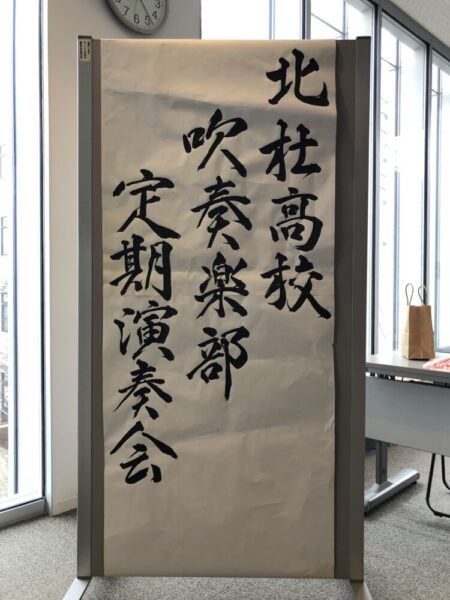 北杜高校
吹奏楽部
定期演奏会